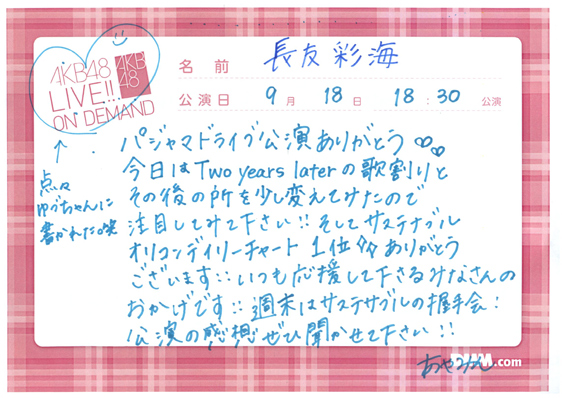 AKB48
LIVE!!
ON DEMAND
AKB
48
名前 長友彩海
公演日 9月 18日 18:30 公演
パジャマドライブ公演ありがとう♡♡
今日はTwo years laterの歌割りと
その後の所を少し変えてみたので
注目してみて下さい!!そしてサステナブル
オリコンデイリーチャート 1位 ありがとう
ございます::いつも応援して下さるみなさんの
おかげです::週末はサステナブルの握手会!
公演の感想ぜひ聞かせて下さい!!
↑
点々
ゆうちゃんに
書かれた。笑
あやみん
.com